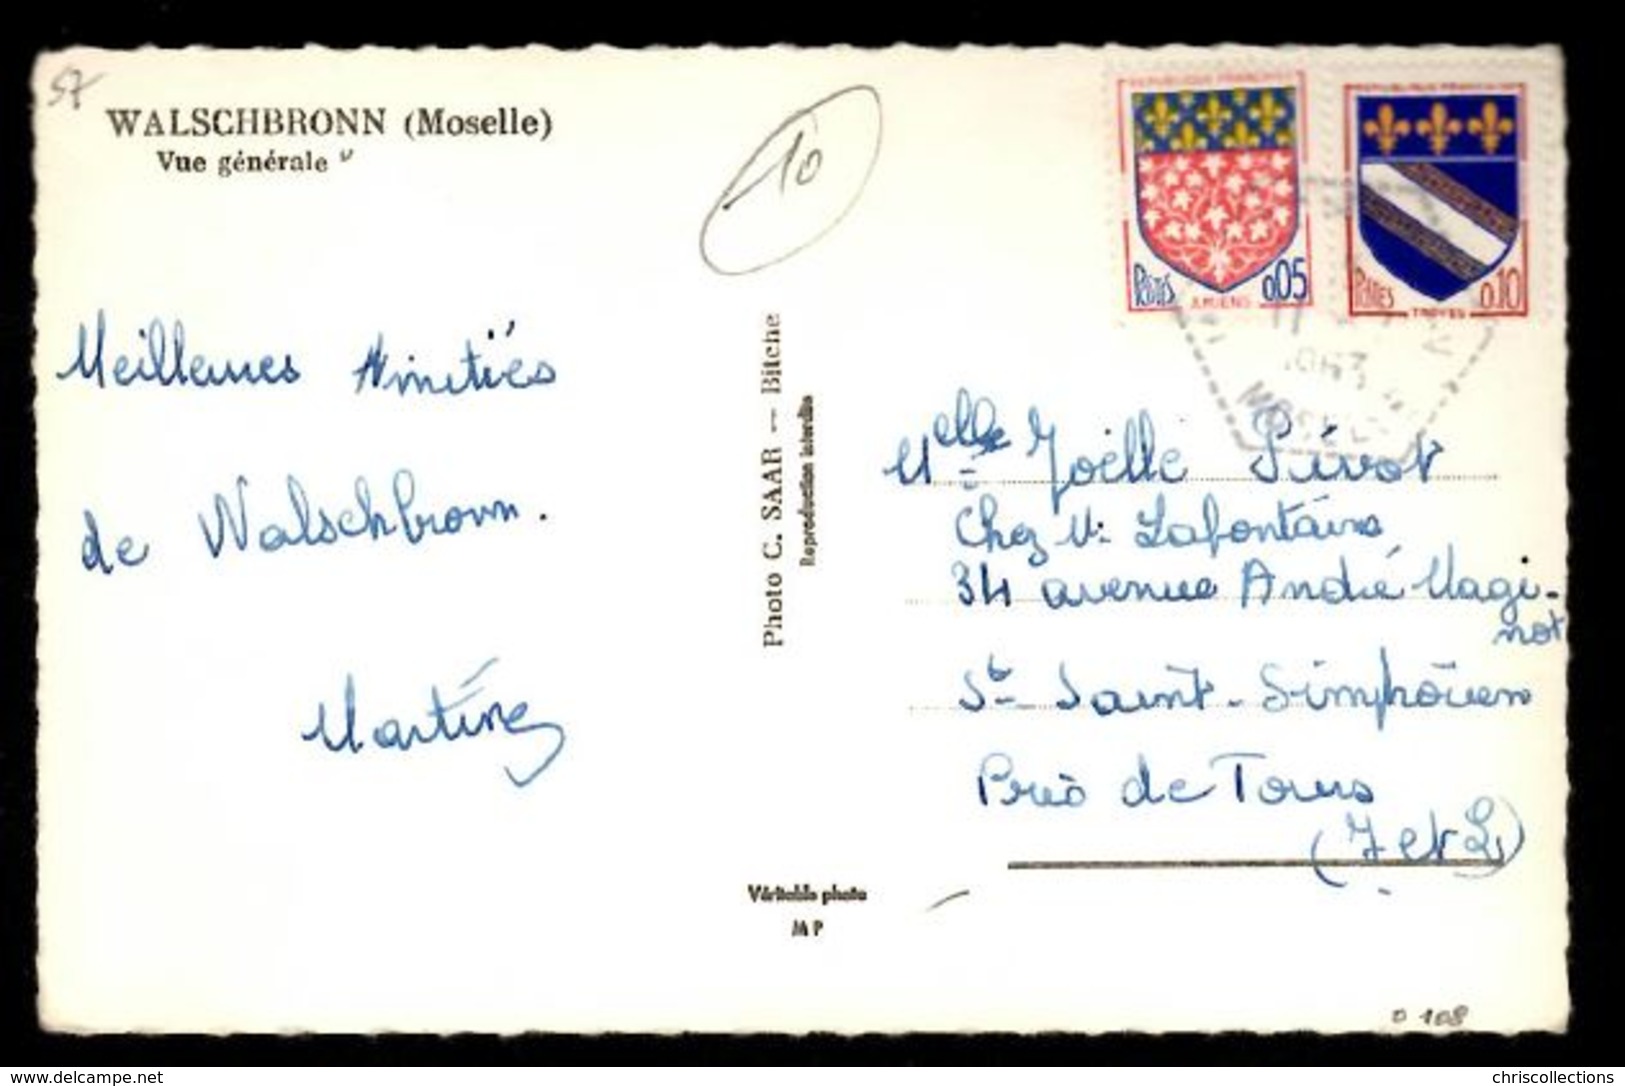 57
WALSCHBRONN (Moselle)
Vue générale
10
REPUBLIQUE FRANÇAISE
POSTES
AMIENS
0,05
REPUBLIQUE FRANÇAISE
POSTES
TROYES
0,10
11
1963
MOSELLE
Meilleures Amitiés
de Walschbronn.
Martine
Photo C. SAAR — Bitche
Reproduction interdite
Melle Joëlle Pivot
Chez M. Lafontaine
34 avenue André Magi-
not
St Saint-Simphorien
Près de Tours
(I et L)
Véritable photo
MP
0 108
https://www.delcampe.net
chriscollections